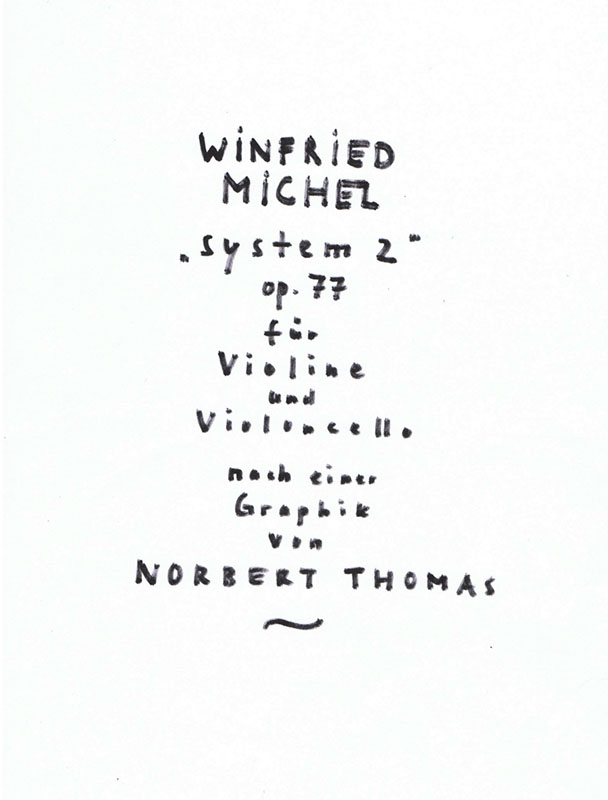 WINFRIED
MICHEL
„system 2"
op. 77
für
Violine
und
Violoncello
nach einer
Graphik
von
NORBERT THOMAS